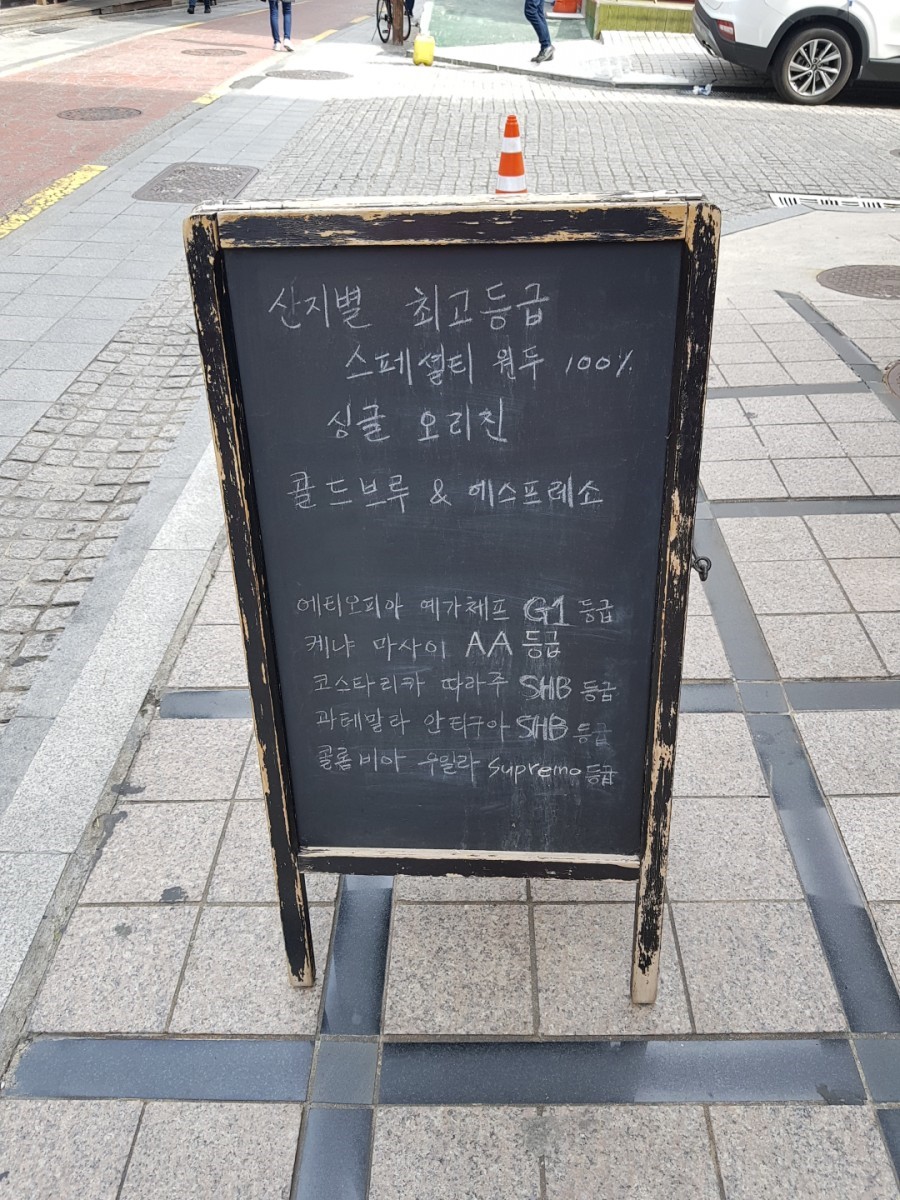 산지별 최고등급
스페셜티 원두 100%
싱글 오리진
콜드브루 & 에스프레소
에티오피아 예가체프 G1 등급
케냐 마사이 AA 등급
코스타리카 따라주 SHB 등급
과테말라 안티구아 SHB 등급
콜롬비아 우일라 Supremo 등급